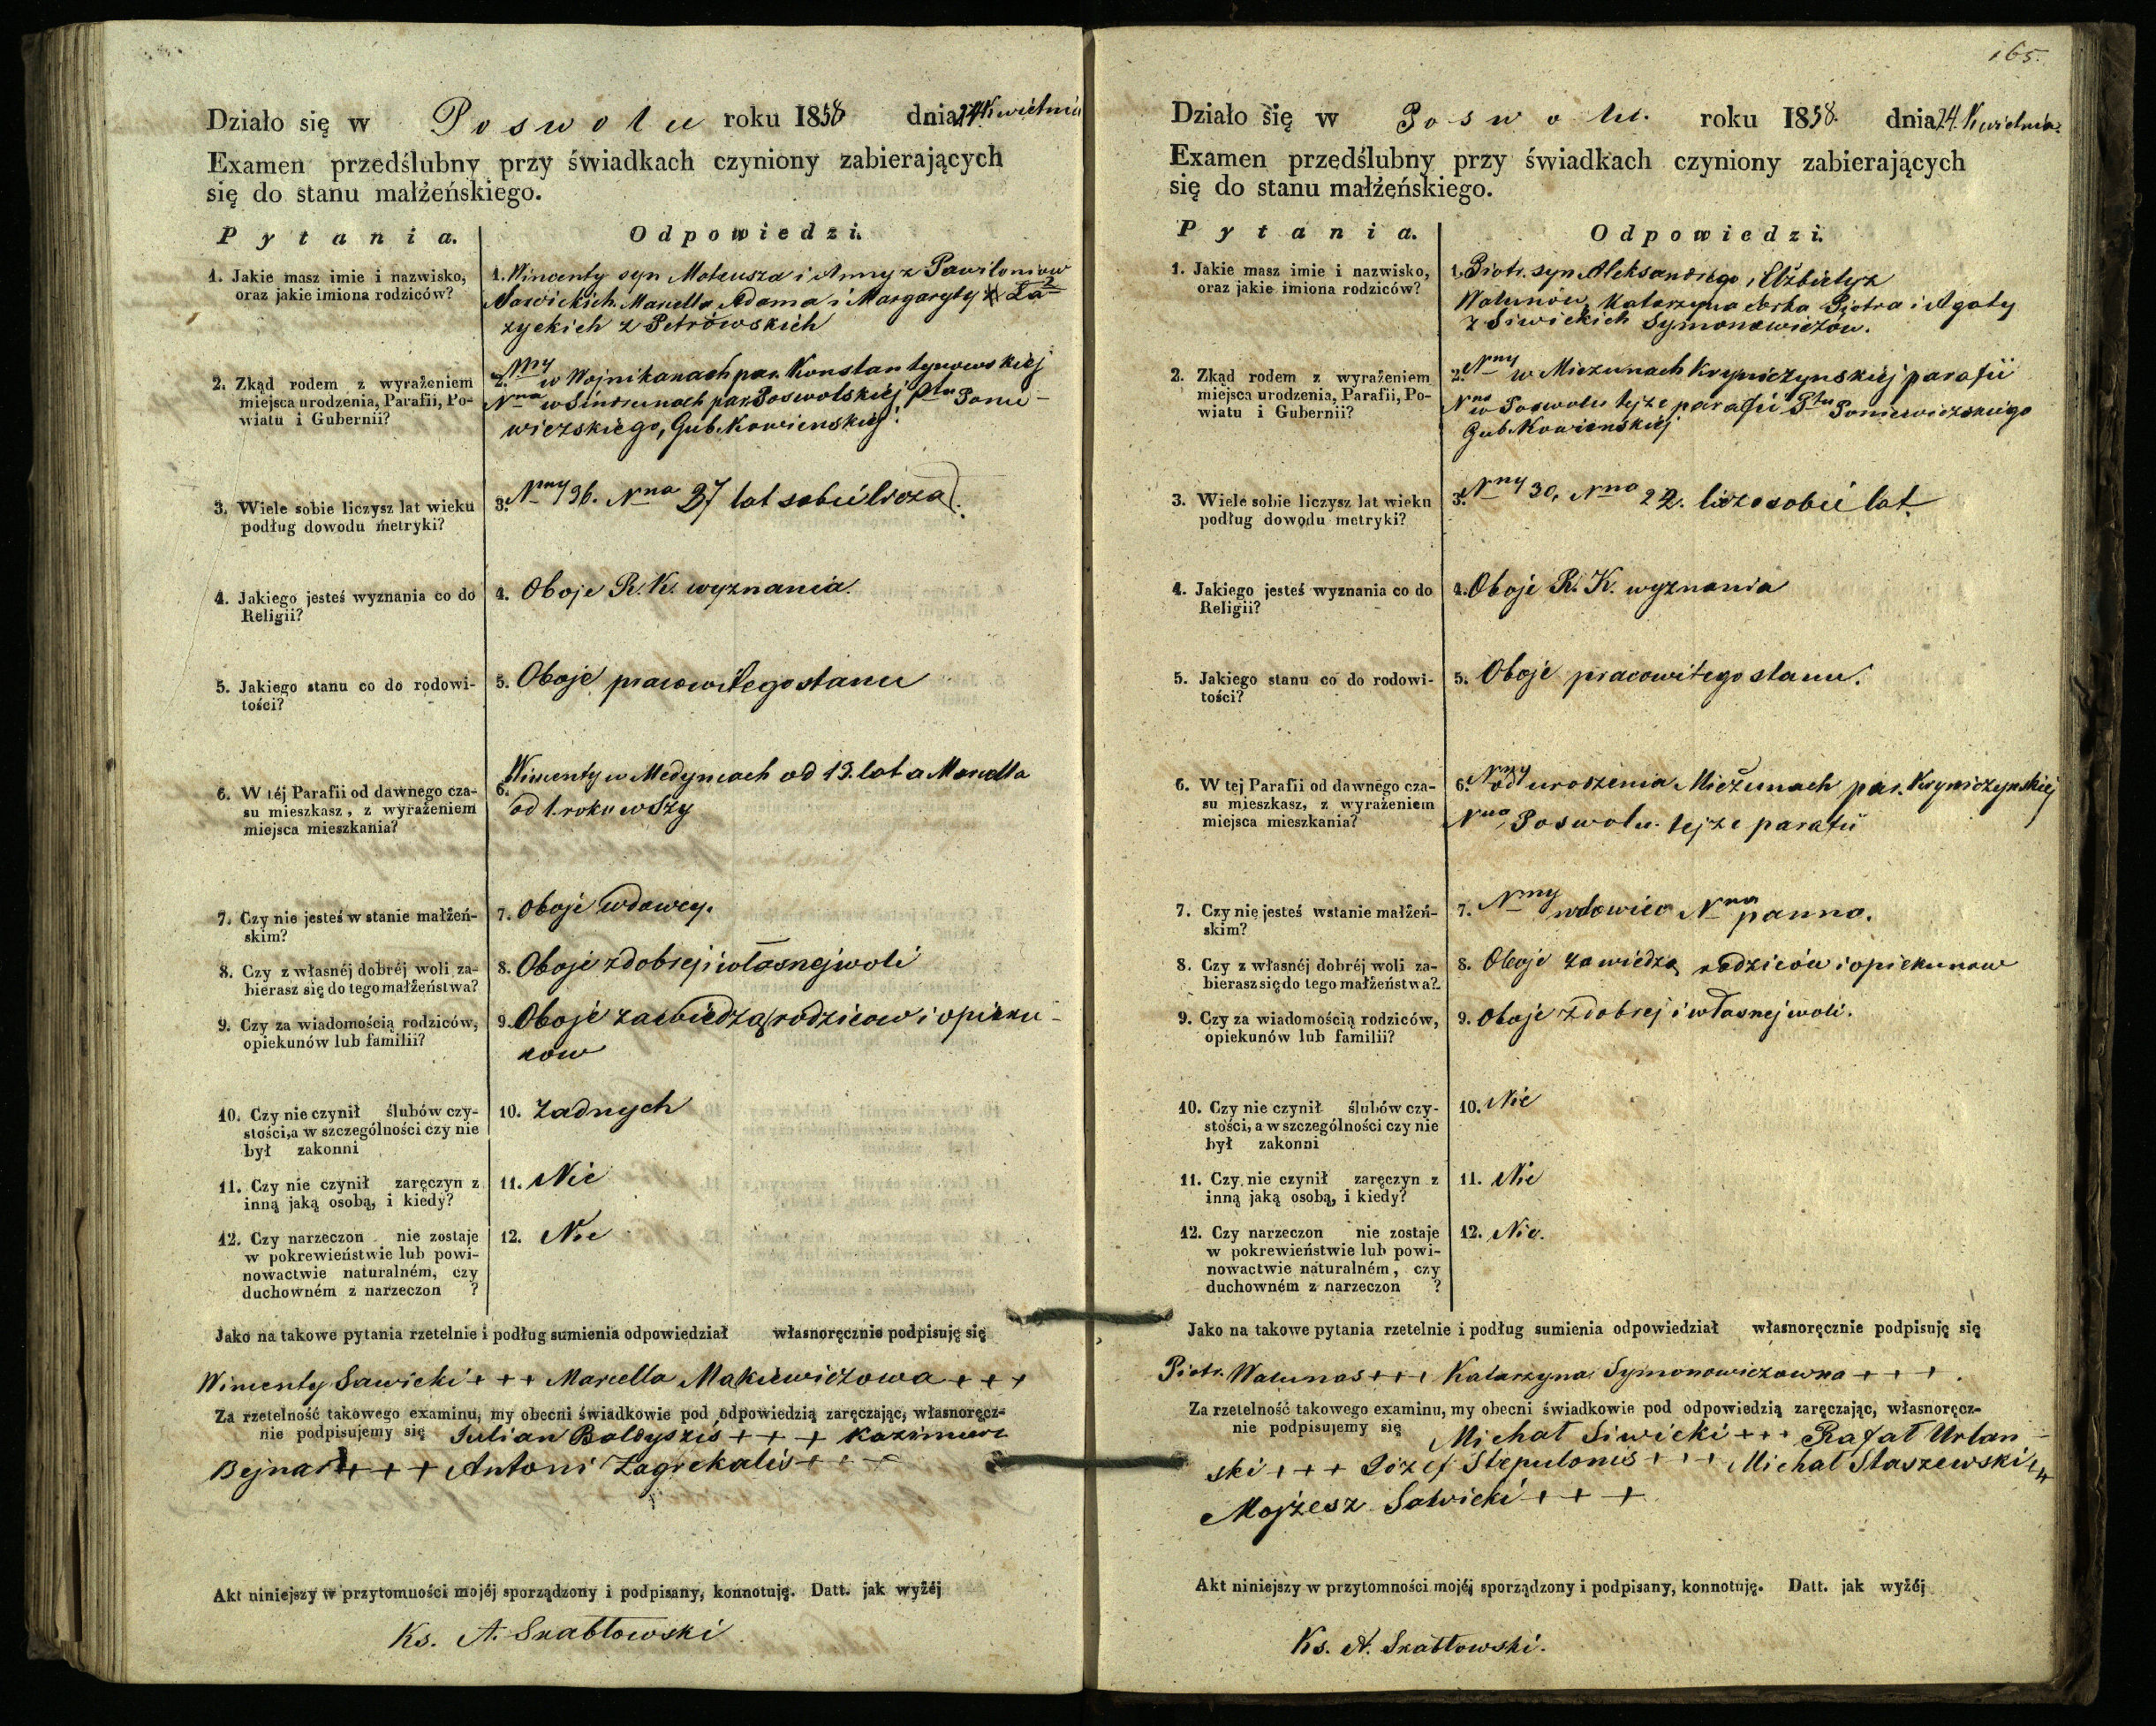 Działo się w Poswolu roku 1858 dnia 24 Kwietnia
Examen przedślubny przy świadkach czyniony zabierających
się do stanu małżeńskiego.
Pytania. Odpowiedzi.
1. Jakie masz imie i nazwisko,
oraz jakie imiona rodziców?
1. Wincenty syn Mateusza i Anny z Pawiloniow
Sawickich. Marcella Adama i Margaryty Ła=
zyckich z Petrowskich
2. Zkąd rodem z wyrażeniem
miejsca urodzenia, Parafii, Po-
wiatu i Gubernii?
2. Nny w Wojnikanach par. Konstantynowskiej
Nna w Sindrunach par Poswolskiej Ptu Ponie-
wiezskiego, Gub. Kowienskiej.
3. Wiele sobie liczysz lat wieku
podług dowodu metryki?
3. Nny 36. Nna 37 lat sobie liczą.
4. Jakiego jesteś wyznania co do
Religii?
4. Oboje R. K. wyznania.
5. Jakiego stanu co do rodowi-
tości?
5. Oboje pracowitego stanu
6. W téj Parafii od dawnego cza-
su mieszkasz, z wyrażeniem
miejsca mieszkania?
6. Wincenty w Medyncach od 13. lat a Marcella
od 1. roku w Szy
7. Czy nie jesteś w stanie małżeń-
skim?
7. Oboje wdowcy.
8. Czy z własnéj dobréj woli za-
bierasz się do tego małżeństwa?
8. Oboje z dobrej i własnej woli
9. Czy za wiadomością rodziców,
opiekunów lub familii?
9. Oboje za wiedzą rodzicow i opieku-
now
10. Czy nie czynił ślubów czy-
stości, a w szczególności czy nie
był zakonni
10. Żadnych
11. Czy nie czynił zaręczyn z
inną jaką osobą, i kiedy?
11. Nie
12. Czy narzeczon nie zostaje
w pokrewieństwie lub powi-
nowactwie naturalném, czy
duchowném z narzeczon ?
12. Nie
Jako na takowe pytania rzetelnie i podług sumienia odpowiedział własnoręcznie podpisuję się
Wincenty Sawicki + + + Marcella Mackiewiczowa + + +
Za rzetelność takowego examinu, my obecni świadkowie pod odpowiedzią zaręczając, własnoręcz-
nie podpisujemy się Julian Bałdyszis + + + Kazimierz
Bejnar + + + Antoni Zagrekalis + + +
Akt niniejszy w przytomności mojéj sporządzony i podpisany, konnotuję. Datt. jak wyżéj
Ks. A. Szabłowski
165.
Działo się w Poswolu. roku 1858. dnia 24. Kwietnia.
Examen przedślubny przy świadkach czyniony zabierających
się do stanu małżeńskiego.
Pytania. Odpowiedzi.
1. Jakie masz imie i nazwisko,
oraz jakie imiona rodziców?
1. Piotr. syn Aleksandrego i Elżbiety z
Wałunów, Katarzyna córka Piotra i Agaty
z Siwickich Symonowiczów.
2. Zkąd rodem z wyrażeniem
miejsca urodzenia, Parafii, Po-
wiatu i Gubernii?
2. Nny w Miezunach Kryniczynskiej parafii
Nna w Poswolu tejże parafii Ptu Poniewiezskiego
Gub. Kowienskiej
3. Wiele sobie liczysz lat wieku
podług dowodu metryki?
3. Nny 30, Nna 22. liczo sobie lat.
4. Jakiego jesteś wyznania co do
Religii?
4. Oboje R. K. wyznania
5. Jakiego stanu co do rodowi-
tości?
5. Oboje pracowitego stanu.
6. W tej Parafii od dawnego cza-
su mieszkasz, z wyrażeniem
miejsca mieszkania?
6. Nny od urodzenia Mieżunach par. Kryniczynskiej
Nna Poswolu. tejże parafii
7. Czy nie jesteś w stanie małżeń-
skim?
7. Nny wdowiec Nna panna.
8. Czy z własnéj dobréj woli za-
bierasz się do tego małżeństwa?
8. Oboje za wiedzą rodziców i opiekunow
9. Czy za wiadomością rodziców,
opiekunów lub familii?
9. Oboje z dobrej i własnej woli.
10. Czy nie czynił ślubów czy-
stości, a w szczególności czy nie
był zakonni
10. Nie
11. Czy nie czynił zaręczyn z
inną jaką osobą, i kiedy?
11. Nie
12. Czy narzeczon nie zostaje
w pokrewieństwie lub powi-
nowactwie naturalném, czy
duchowném z narzeczon ?
12. Nie.
Jako na takowe pytania rzetelnie i podług sumienia odpowiedział własnoręcznie podpisuję się
Piotr. Wałunas + + + Katarzyna Symonowiczowna + + + .
Za rzetelność takowego examinu, my obecni świadkowie pod odpowiedzią zaręczając, własnoręcz-
nie podpisujemy się Michał Siwicki + + + Rafał Urban-
ski + + + Józef Stepulonis + + + Michał Staszewski + +
Mojżesz Sawicki + + +
Akt niniejszy w przytomności mojéj sporządzony i podpisany, konnotuję. Datt. jak wyżéj
Ks. A. Szabłowski.